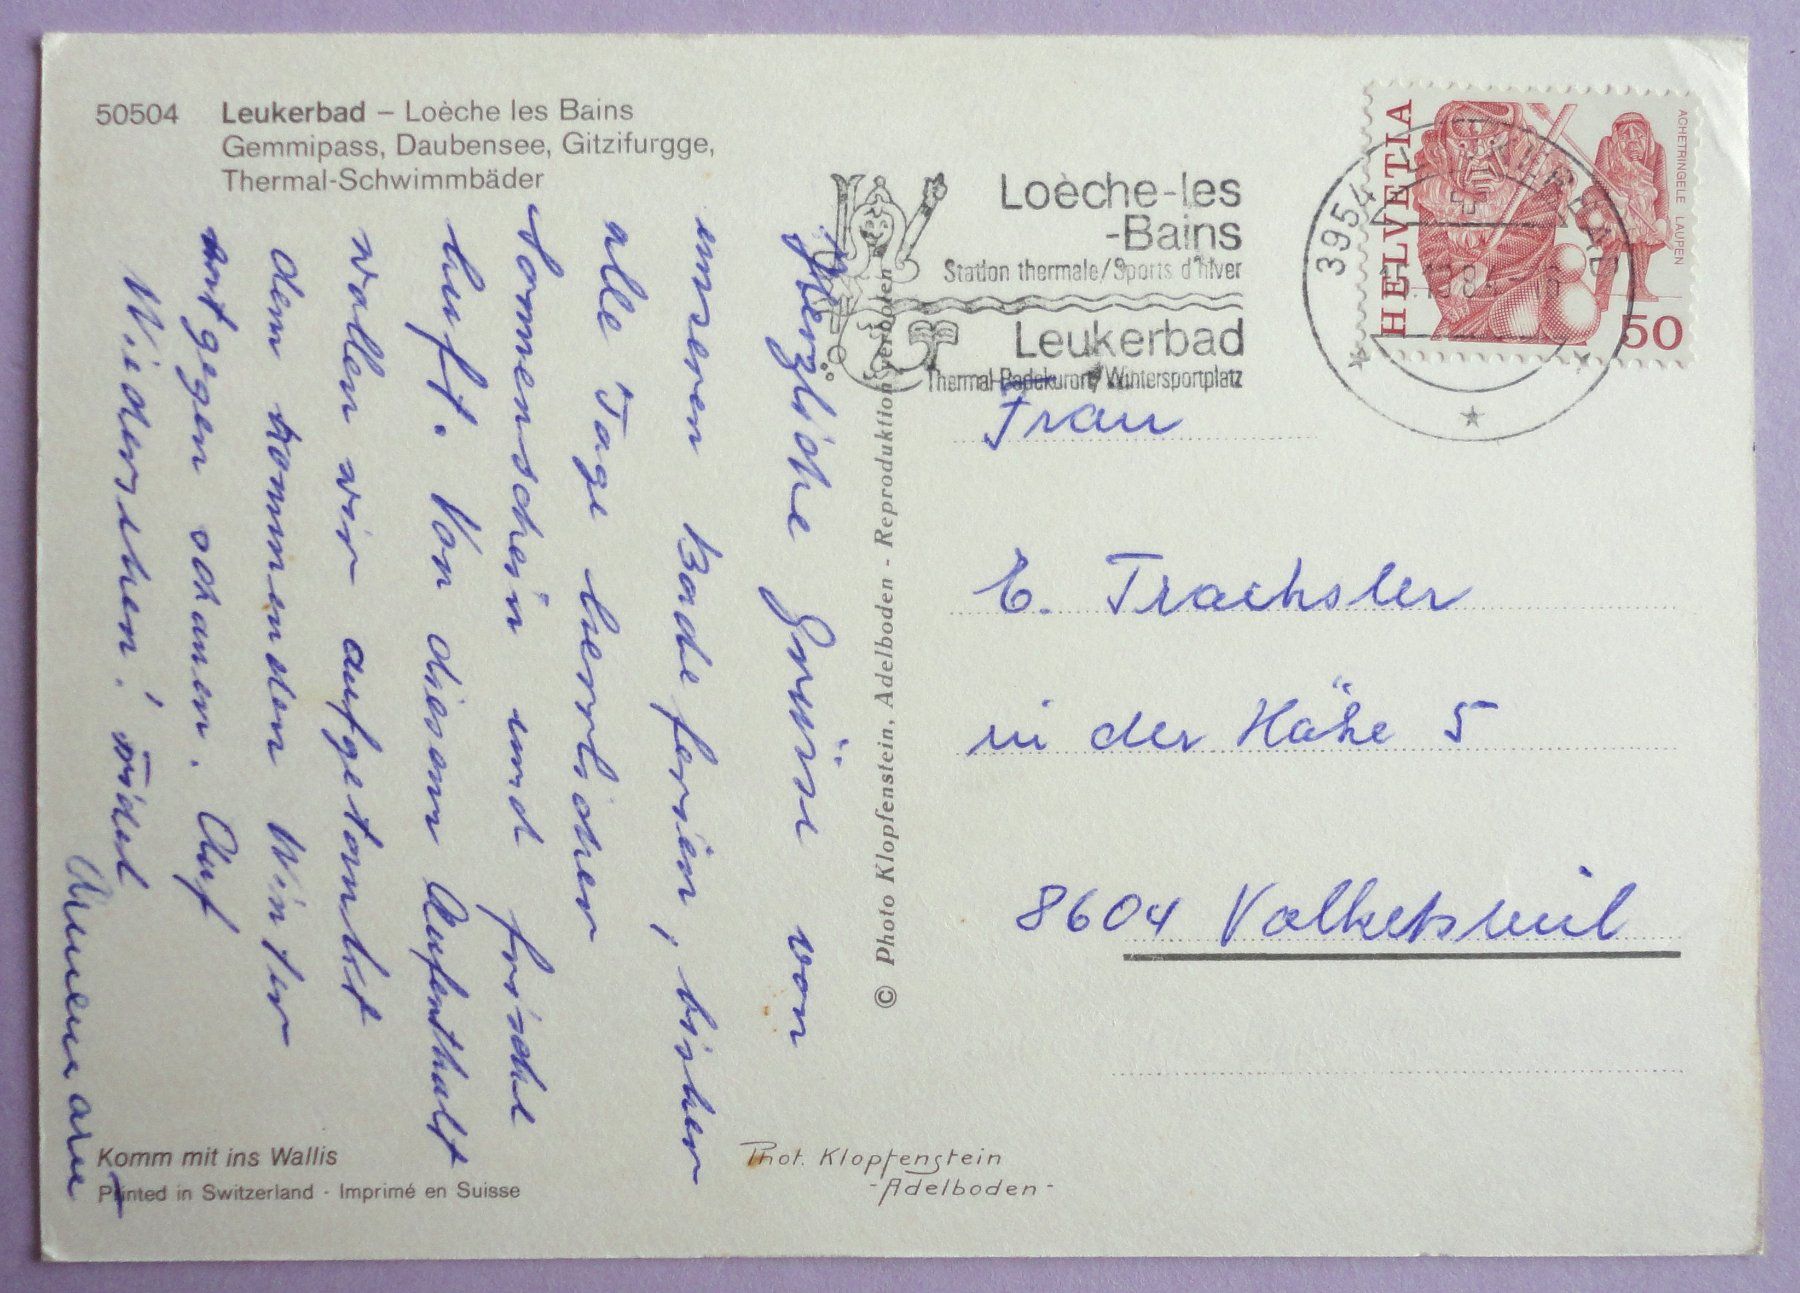 50504 Leukerbad – Loèche les Bains
Gemmipass, Daubensee, Gitzifurgge,
Thermal-Schwimmbäder
Herzliche Grüsse von
unseren Badeferien, bisher
alle Tage herrlicher
Sonnenschein und frische
Luft. Von diesem Aufenthalt
wollen wir aufgetankt
dem kommenden Winter
entgegen schauen. Auf
Widersehen!
Komm mit ins Wallis
Printed in Switzerland · Imprimé en Suisse
© Photo Klopfenstein, Adelboden - Reproduktion verboten
Phot. Klopfenstein
- Adelboden -
Loèche-les
-Bains
Station thermale/Sports d'hiver
Leukerbad
Thermal-Badekurort/Wintersportplatz
3954 LEUKERBAD
HELVETIA
50
ACHETRINGELE LAUPEN
Frau
E. Trachsler
in der Höhe 5
8604 Volketswil